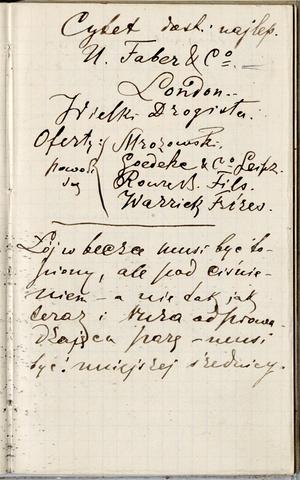 Cybet dost. najlep.
U. Faber & Co.
London.
Wielki Drogista.
Oferty: Mrozowski.
powołi Goedeke & Co Leipz.
się Roure B. Fils.
Warrick Frères.
Łój w beczce musi być to-
piony, ale pod ciśnie-
niem – a nie tak jak
teraz i rura odprowa-
dzająca parę – musi
być mniejszej średnicy.